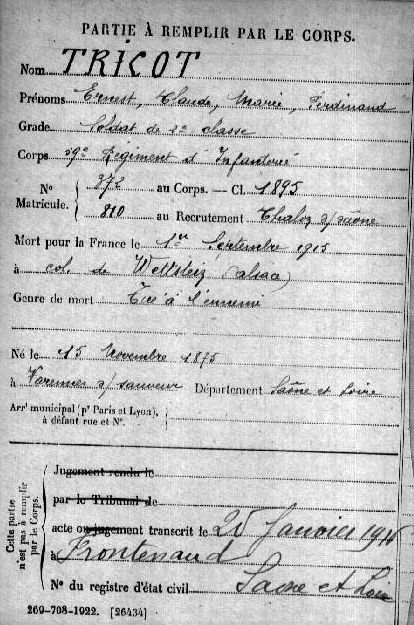 PARTIE À REMPLIR PAR LE CORPS.
Nom TRICOT
Prénoms Ernest, Claude, Marie, Ferdinand
Grade Soldat de 2e classe
Corps 59e Régiment d'Infanterie
N° 372 au Corps. — Cl. 1895
Matricule. 810 au Recrutement Chalon s/saône
Mort pour la France le 1er Septembre 1915
à col de Wettstein (alsace)
Genre de mort Tué à l'ennemi
Né le 15 Novembre 1875
à Varennes s/ sauveur Département Saône et Loire
Arrt municipal (pr Paris et Lyon),
à défaut rue et N°.
Cette partie n'est pas à remplir par le Corps.
Jugement rendu le
par le Tribunal de
acte ou jugement transcrit le 25 Janvier 1916
à Frontenaud
N° du registre d'état civil Saone et Loire
260-708-1922. [26434]